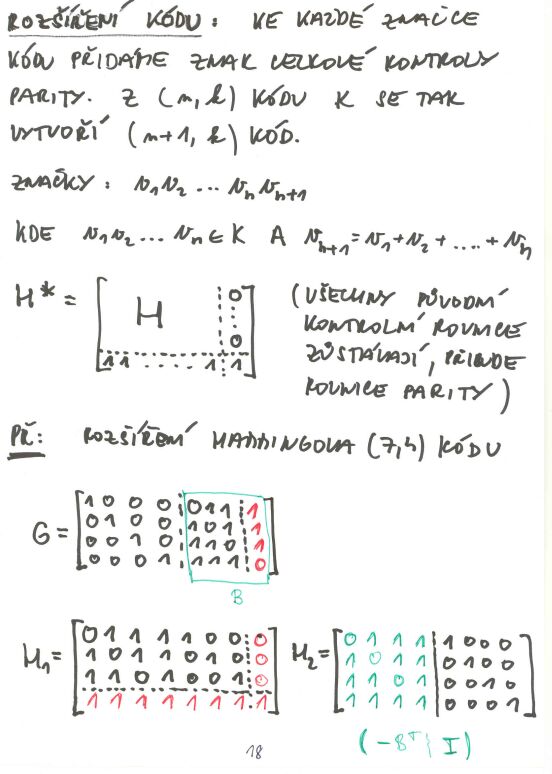 ROZŠÍŘENÍ KÓDU: KE KAŽDÉ ZNAČCE
KÓDU PŘIDÁME ZNAK CELKOVÉ KONTROLY
PARITY. Z (n, k) KÓDU K SE TAK
VYTVOŘÍ (n+1, k) KÓD.
ZNAČKY: v₁v₂ ... vₙvₙ₊₁
KDE v₁v₂ ... vₙ ∈ K A vₙ₊₁ = v₁+v₂+ .... + vₙ
H* = [ H 0 ⋮ 0 11 ..... 1 1 ]
(VŠECHNY PŮVODNÍ
KONTROLNÍ ROVNICE
ZŮSTÁVAJÍ, PŘIBUDE
ROVNICE PARITY)
PŘ: ROZŠÍŘENÍ HAMMINGOVA (7,4) KÓDU
G =
1 0 0 0 0 1 1 1
0 1 0 0 1 0 1 1
0 0 1 0 1 1 0 1
0 0 0 1 1 1 1 0
B
H₁ =
0 1 1 1 1 0 0 0
1 0 1 1 0 1 0 0
1 1 0 1 0 0 1 0
1 1 1 1 1 1 1 1
H₂ =
0 1 1 1 1 0 0 0
1 0 1 1 0 1 0 0
1 1 0 1 0 0 1 0
1 1 1 1 0 0 0 1
(-Bᵀ | I)
18